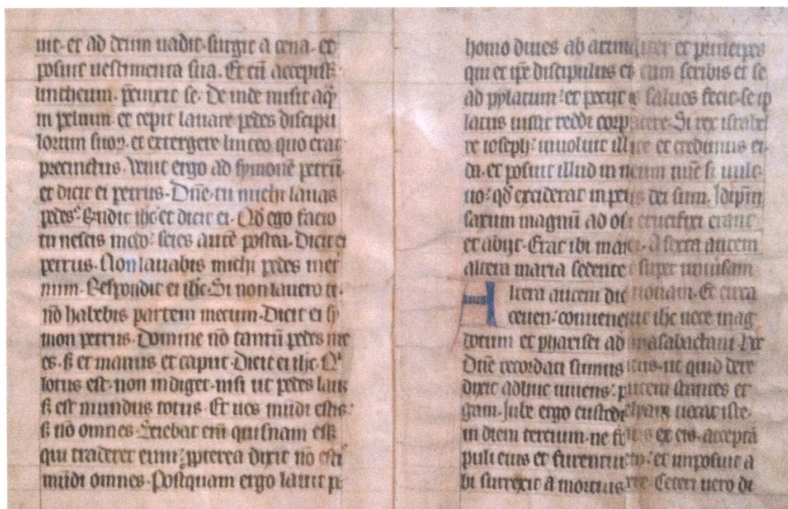 uit. et ad deum uadit. surgit a cena. et
posuit uestimenta sua. Et cū accepiss&
lintheum. p̄cinxit se. De inde misit aq̄
in peluim et cepit lauare pedes discipu
lorum suoꝝ. et extergere linteo quo erat
precinctus. Venit ergo ad symonē petrū
et dicit ei petrus. Dn̄e. tu michi lauas
pedes. Rñdit ihc et dicit ei. Qd̓ ego facio
tu nescis modo: scies autē postea. Dicit ei
petrus. Non lauabis michi pedes in et
num. Respondit ei ihc. Si non lauero te.
nō habebis partem mecum. Dicit ei sy
mon petrus. Domine nō tantū pedes me
os. s; et manus et caput. Dicit ei ihc. Qui
lotus est. non indiget nisi ut pedes lauet
s; est mundus totus. Et uos mūdi estis:
s; nō omnes. Sciebat em̄ quisnam ess&
qui traderet eum: ppterea dixit nō estis
mūdi omnes. Postquam ergo lauit p
homo diues ab arima et principes
qui et ipe discipulus e cum scribis et se
ad pylatum: et peciit saluos fecit. se ip
latus iussit reddi corp Si rex israhel
re ioseph: inuoluit ill et credimus ei
da. et posuit illud in nunc si uult
uo: qd̓ exciderat in pet dei sum. Idipm
saxum magnū ad osti crucifixi erant
et abijt. Erat ibi mari A sexta autem
altera maria sedentes super uniuersam
Altera autem die nonam. Et circa
ceuen: conuenerunt ihc uoce mag
dotum et pharisei ad zabactani
Dn̄e recordati sumus ut quid dere
dixit adhuc uiuens: p stantes et
gam. Iube ergo custodi uocat iste.
in diem tercium. ne fo ex eis. accepta
puli eius et furentur et imposuit a
bi surrexit a mortuis Ceteri uero di